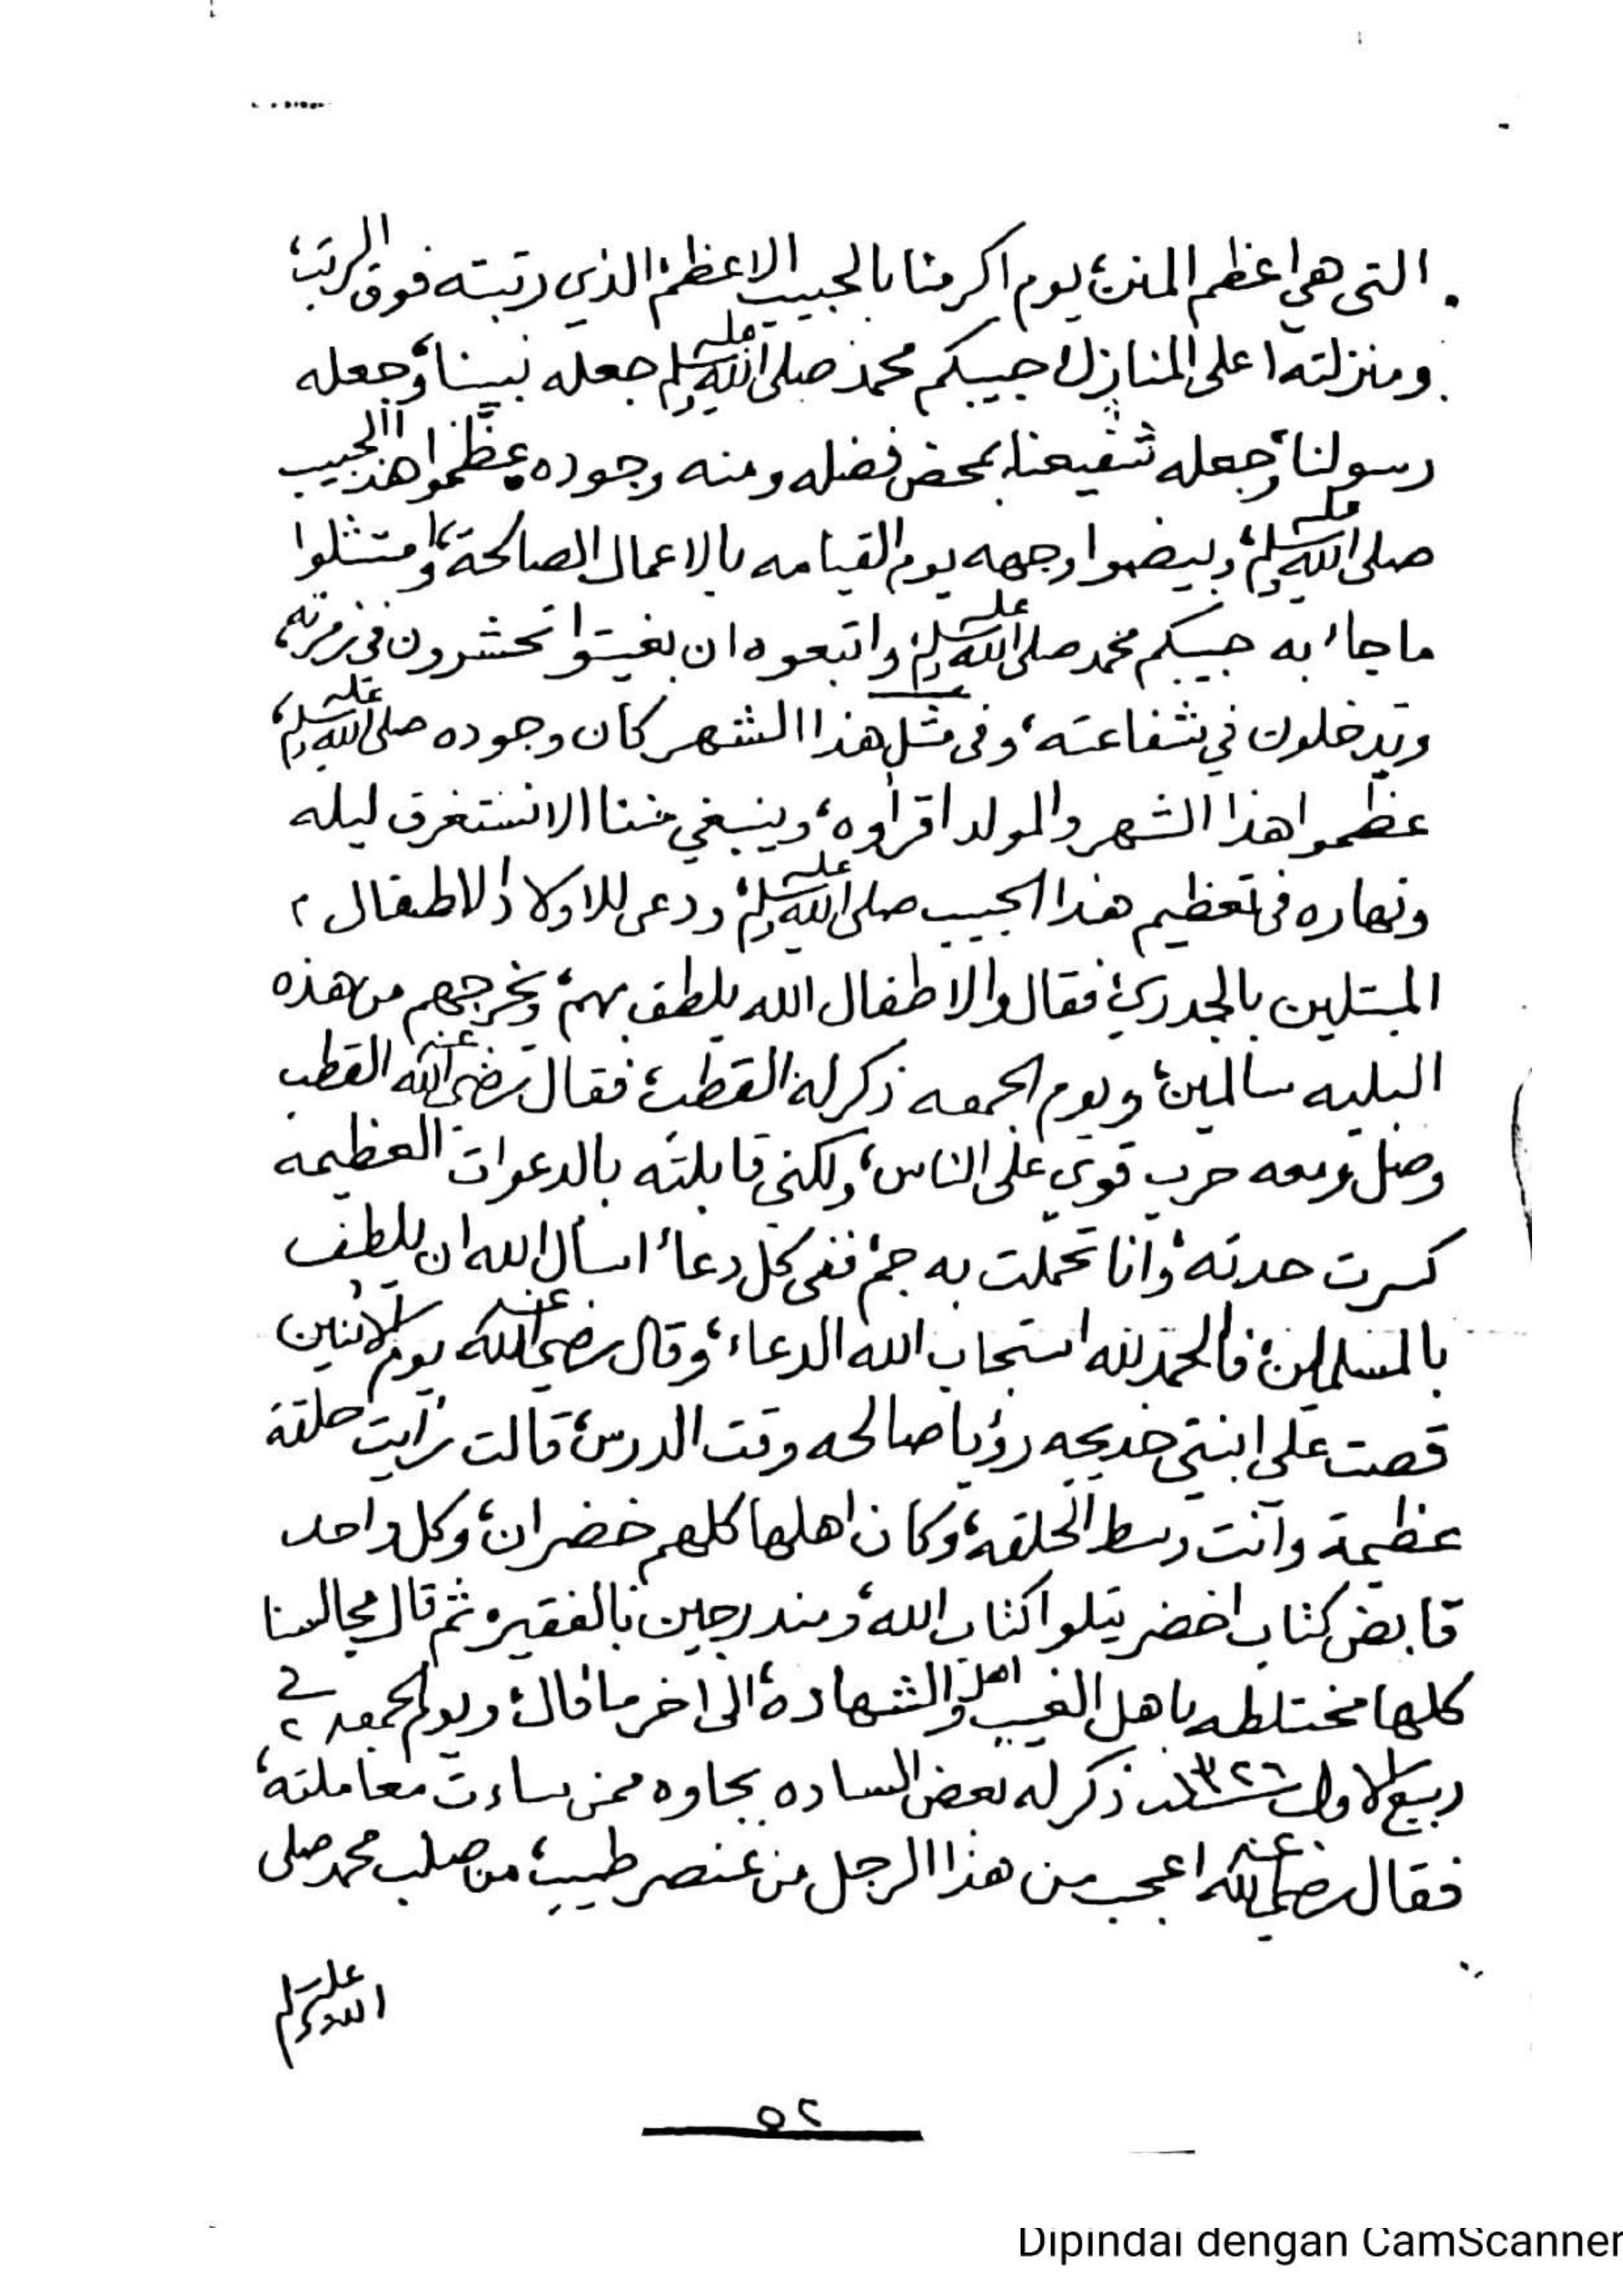 التى هي اعظم المنن، يوم اكرمنا بالحبيب الاعظم، الذي رتبته فوق الرتب،
ومنزلته اعلى المنازل، حبيبكم محمد صلى الله عليه وسلم جعله نبينا، وجعله
رسولنا، وجعله شفيعنا، بمحض فضله ومنه وجوده، عظّموا هذا الحبيب
صلى الله عليه وسلم، وبيضوا وجهه يوم القيامه بالاعمال الصالحة، وامتثلوا
ماجاء به حبيبكم محمد صلى الله عليه وسلم، واتبعوه ان بغيتوا تحشرون في زمرته،
وتدخلون في شفاعته، وفى مثل هذا الشهر كان وجوده صلى الله عليه وسلم،
عظّموا هذا الشهر والمولد اقراوه، وينبغي مننا الا نستغرق ليله
ونهاره فى تعظيم هذا الحبيب صلى الله عليه وسلم، ودعى للاولاد والاطفال
المبتلين بالجدري، فقال والاطفال الله يلطف بهم، ويخرجهم من هذه
البليه سالمين، ويوم الجمعه ذكر له القطب، فقال رضي الله عنه القطب
وصل ومعه حرب قوي على الناس، ولكني قابلته بالدعوات العظيمه
كسرت حدته، وانا تحملت به جم، ففى كل دعاء اسأل الله ان يلطف
بالمسلمين، فالحمد لله استجاب الله الدعاء، وقال رضي الله عنه يوم الاثنين
قصت على ابنتي خديجه رؤيا صالحه وقت الدرس، قالت رأيت حلقة
عظيمة وأنت وسط الحلقه، وكان اهلها كلهم خضران، وكل واحد
قابض كتاب اخضر يتلوا كتاب الله، ومندرجين بالفقير، ثم قال مجالسنا
كلها مختلطه باهل الغيب واهل الشهادة، الى اخر ما قال، ويوم الجمعه ٢ في
ربيع الاول سنة ١٣٢٦ ذكر له بعض الساده بجاوه ممن ساءت معاملته،
فقال رضي الله عنه اعجب من هذا الرجل من عنصر طيب، من صلب محمد صلى
الله عليه وسلم
٥٢
Dipindai dengan CamScanner